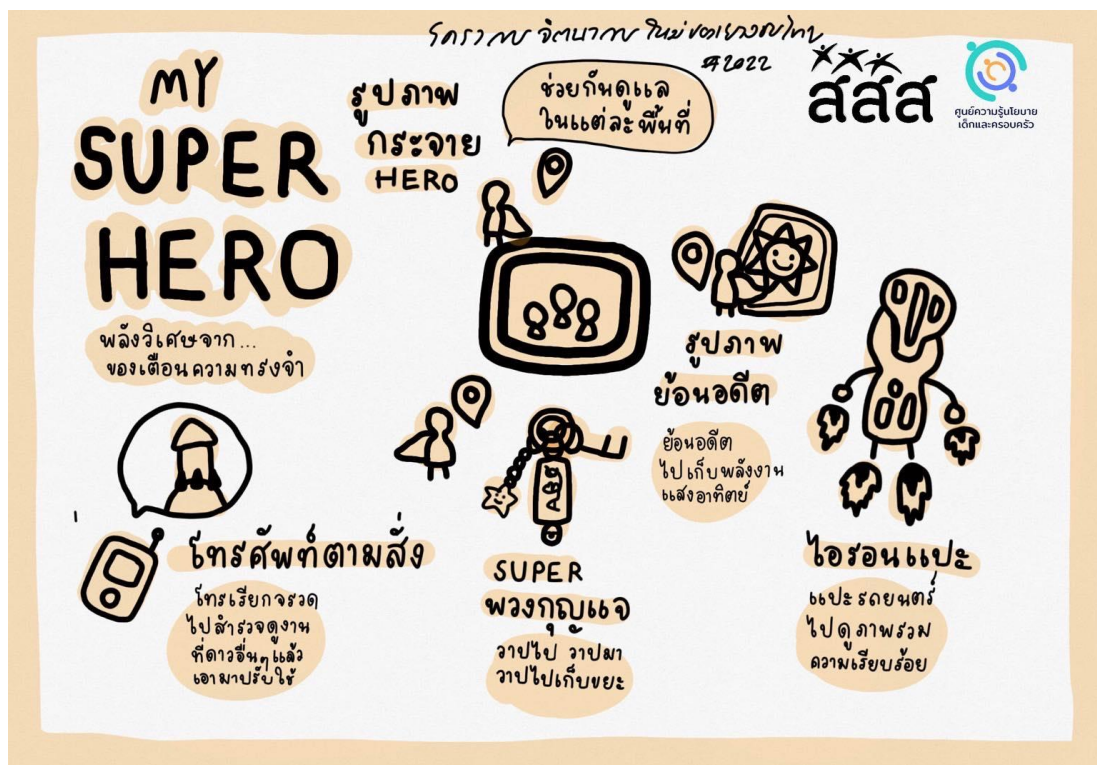 โครงการ จินตนาการ ใหม่ของเยาวชนไทย
2022
สสส
ศูนย์ความรู้นโยบาย
เด็กและครอบครัว
MY
SUPER
HERO
พลังวิเศษจาก...
ของเตือนความทรงจำ
รูปภาพ
กระจาย
HERO
ช่วยกันดูแล
ในแต่ละพื้นที่
รูปภาพ
ย้อนอดีต
ย้อนอดีต
ไปเก็บพลังงาน
แสงอาทิตย์
โทรศัพท์ตามสั่ง
โทรเรียกจรวด
ไปสำรวจดูงาน
ที่ดาวอื่นๆแล้ว
เอามาปรับใช้
SUPER
พวงกุญแจ
วาปไป วาปมา
วาปไปเก็บขยะ
ไอรอนแปะ
แปะรถยนตร์
ไปดูภาพรวม
ความเรียบร้อย